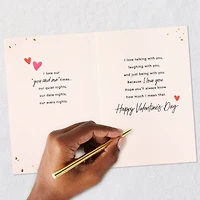 I love our
"you and me" times.
our quiet nights,
our date nights,
our every nights
I love talking with you,
laughing with you,
and just being with you
Because I love you
hope you'll always know
how much I mean that.
Happy Valentine's Day